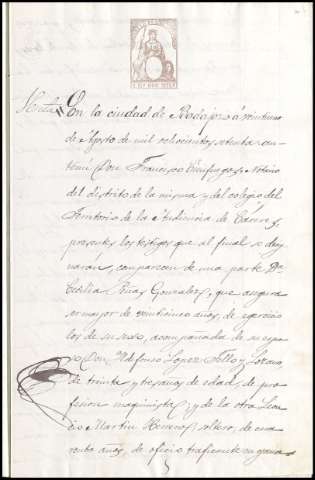 En la ciudad de Badajoz á veintiuno
de Agosto de mil ochocientos setenta an-
temi Don Francisco Notario
del distrito de la misma y del colegio del
Territorio de la Audiencia de Cáceres,
presentes los testigos que al final se desig-
narán, comparecen de una parte Dª
Cecilia Peñas Gonzalez, que asegura
ser mayor de veinticinco años, de ejercicio
los de su sexo, acompañada de su espo-
so Don Ildefonso Lopez Tello y Lozano
de treinta y tres años de edad, de pro-
fesion maquinista, y de la otra
Martin soltero, de cua-
renta años, de oficio traficante en gana-